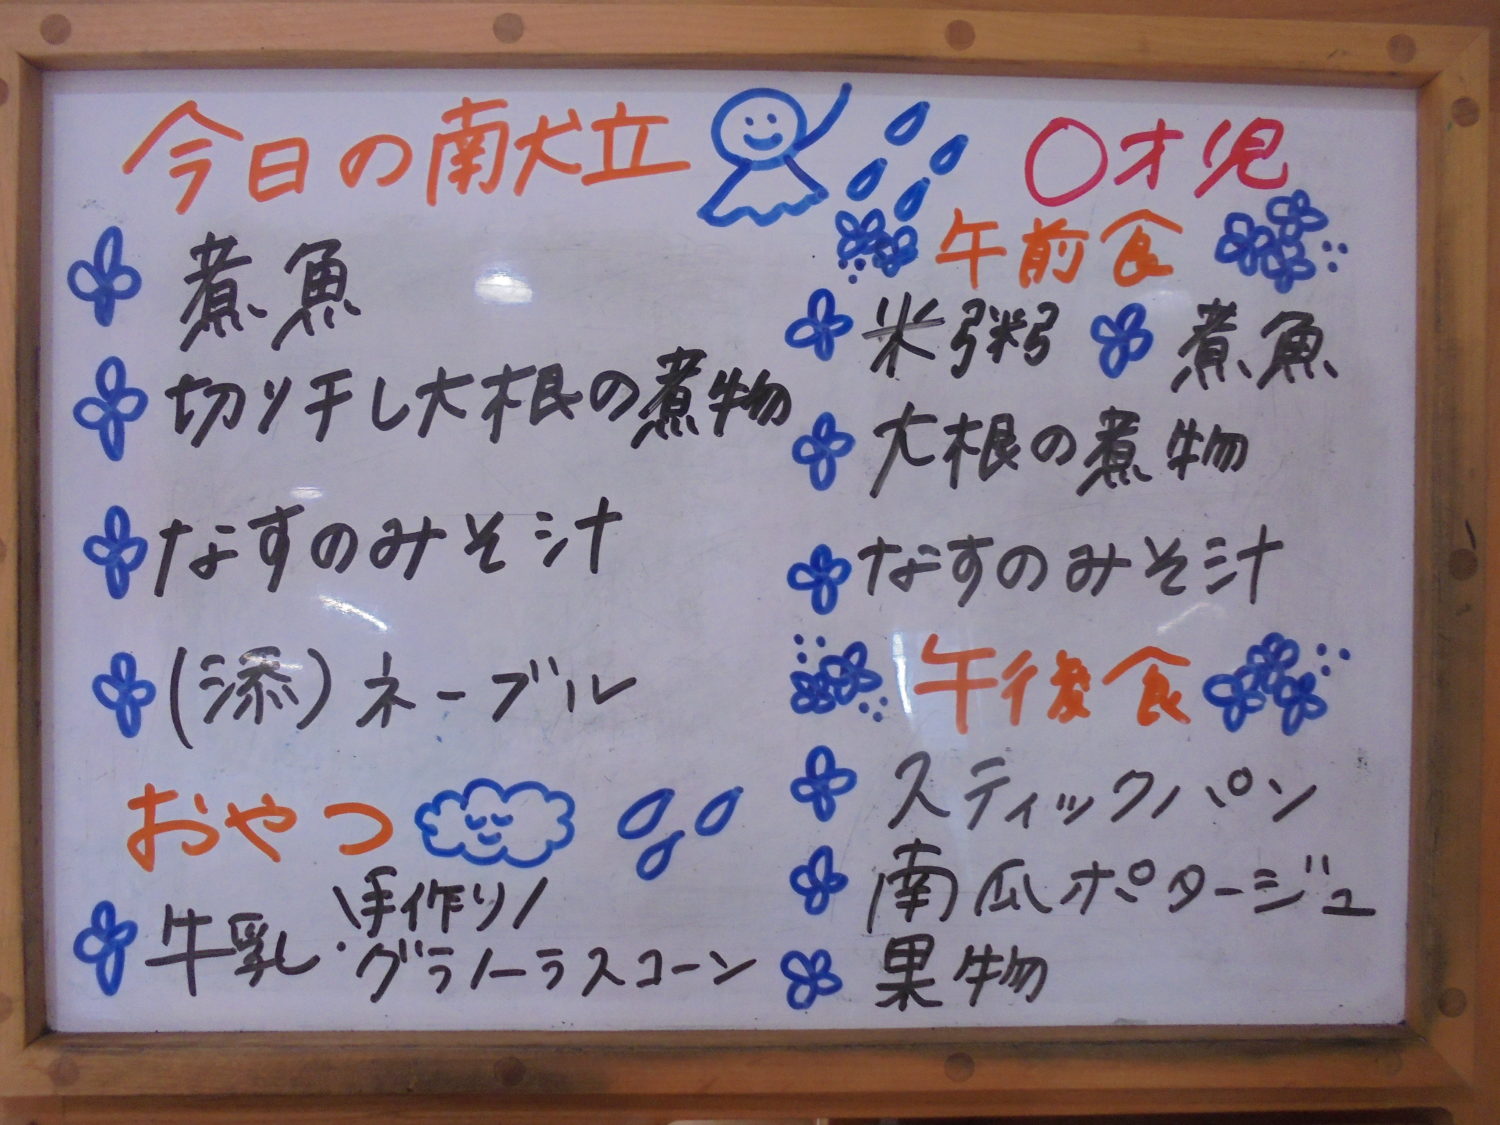 今日の献立
煮魚
切り干し大根の煮物
なすのみそ汁
(添)ネーブル
おやつ
\手作り/
牛乳・グラノーラスコーン
〇才児
午前食
米粥 煮魚
大根の煮物
なすのみそ汁
午後食
スティックパン
南瓜ポタージュ
果物